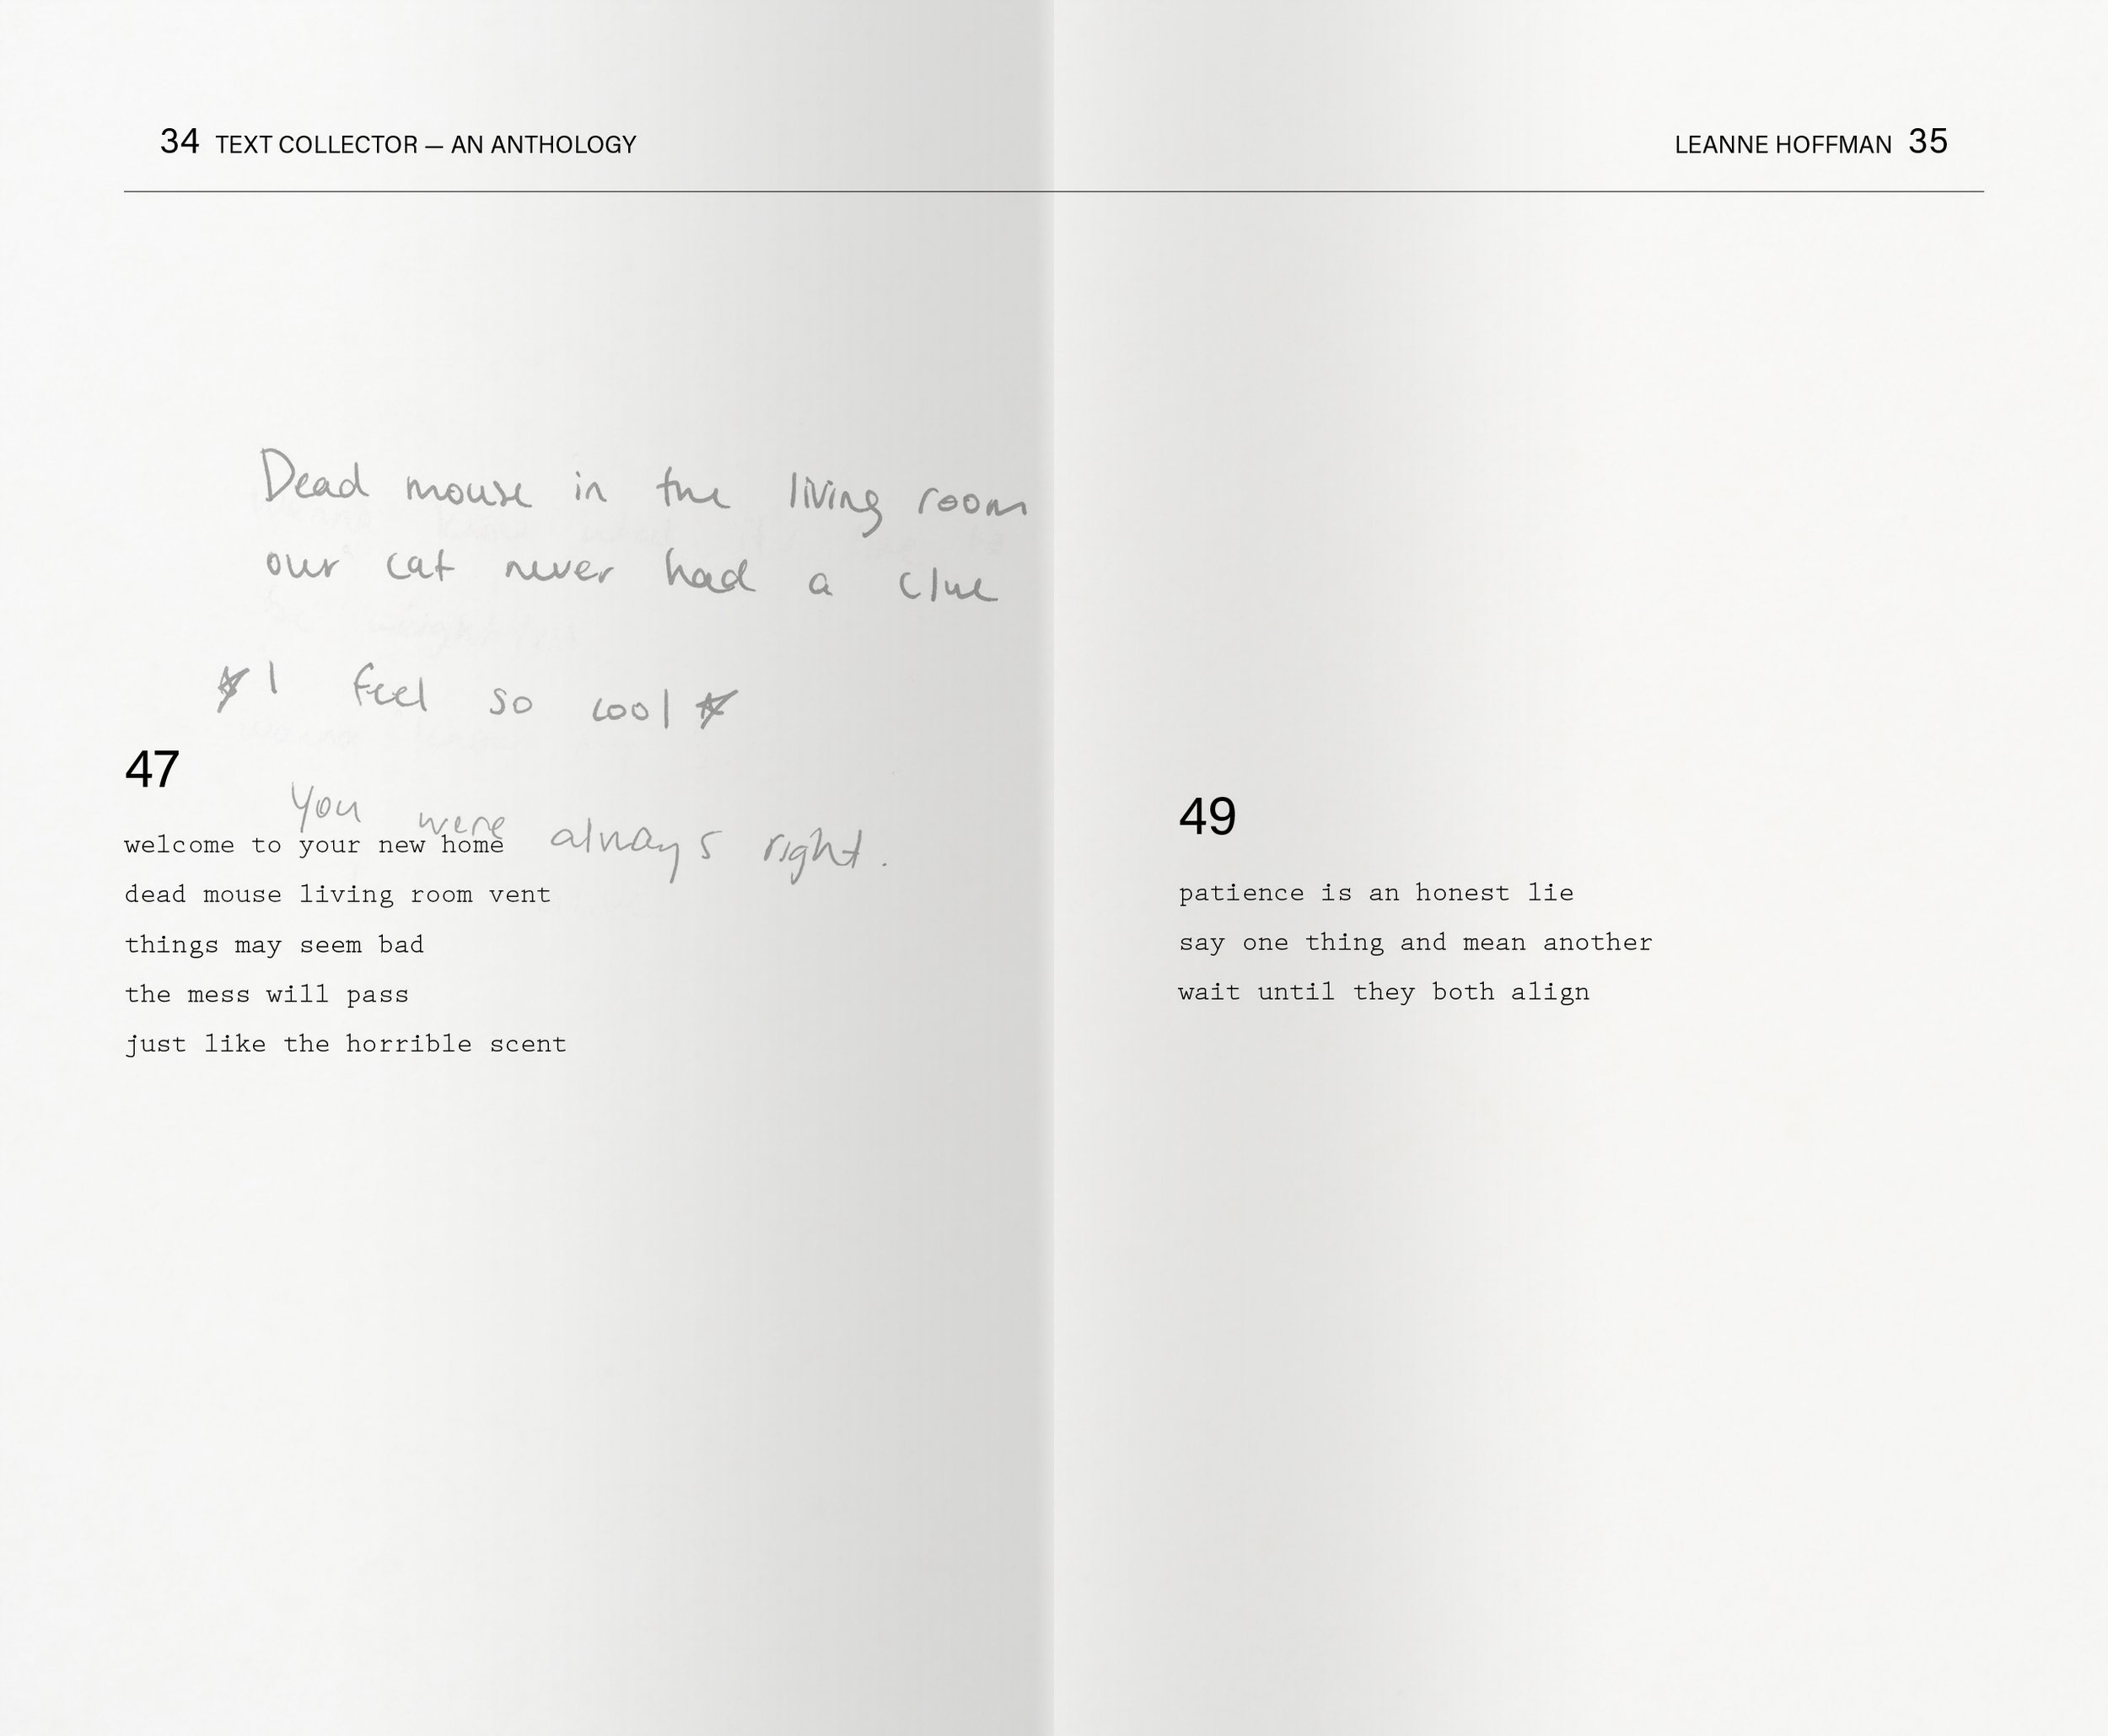 34 TEXT COLLECTOR — AN ANTHOLOGY
Dead mouse in the living room
our cat never had a clue
I feel so cool
You were always right.
47
welcome to your new home
dead mouse living room vent
things may seem bad
the mess will pass
just like the horrible scent
LEANNE HOFFMAN 35
49
patience is an honest lie
say one thing and mean another
wait until they both align